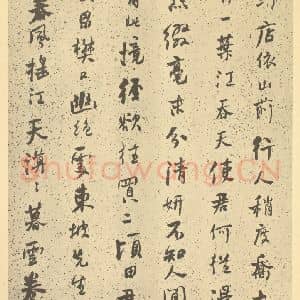 店依山前行人稍度喬
一葉江吞天使君何從得
綴毫末分清妍不知人間
有此境徑欲往買二頃田君
昌樊口幽絕處東坡先生
春風搖江天漠々暮雲卷
Shufawang.CN